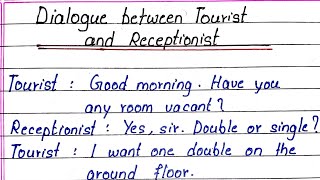 Dialogue between Tourist
and Receptionist
Tourist : Good morning. Have you
any room vacant?
Receptionist : Yes, sir. Double or single?
Tourist : I want one double on the
around floor.